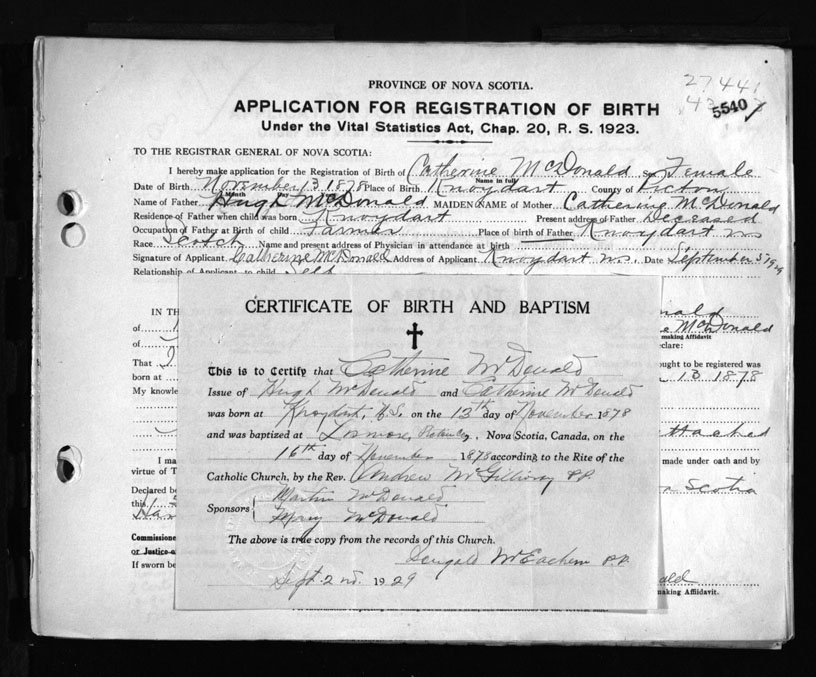 27441
43
5540
PROVINCE OF NOVA SCOTIA.
APPLICATION FOR REGISTRATION OF BIRTH
Under the Vital Statistics Act, Chap. 20, R. S. 1923.
TO THE REGISTRAR GENERAL OF NOVA SCOTIA:
I hereby make application for the Registration of Birth of Catherine McDonald Sex Female
Name in full
Date of Birth November 13 1878 Place of Birth Knoydart County of Pictou
Month Day Year
Name of Father Hugh McDonald MAIDEN NAME of Mother Catherine McDonald
Residence of Father when child was born Knoydart Present address of Father Deceased
Occupation of Father at Birth of child Farmer Place of birth of Father Knoydart N.S.
Race Scotch Name and present address of Physician in attendance at birth
Signature of Applicant Catherine McDonald Address of Applicant Knoydart N.S. Date September 5 1929
Relationship of Applicant to child Self
IN TH
of
McDonald
making Affidavit
of
declare:
That
ought to be registered was
born at
13 1878
My knowle
attached
I ma
made under oath and by
virtue of T
Scotia
Declared be
this
Commissione
or Justice of
If sworn be
making Affidavit.
CERTIFICATE OF BIRTH AND BAPTISM
This is to Certify that Catherine McDonald
Issue of Hugh McDonald and Catherine McDonald
was born at Knoydart, N.S. on the 13th day of November 1878
and was baptized at Lismore, Pictou Co., Nova Scotia, Canada, on the
16th day of November 1878 according to the Rite of the
Catholic Church, by the Rev. Andrew McGillivray P.P.
Sponsors Martin McDonald
Mary McDonald
The above is true copy from the records of this Church.
Dougald McEachern P.P.
Sept. 2nd. 1929